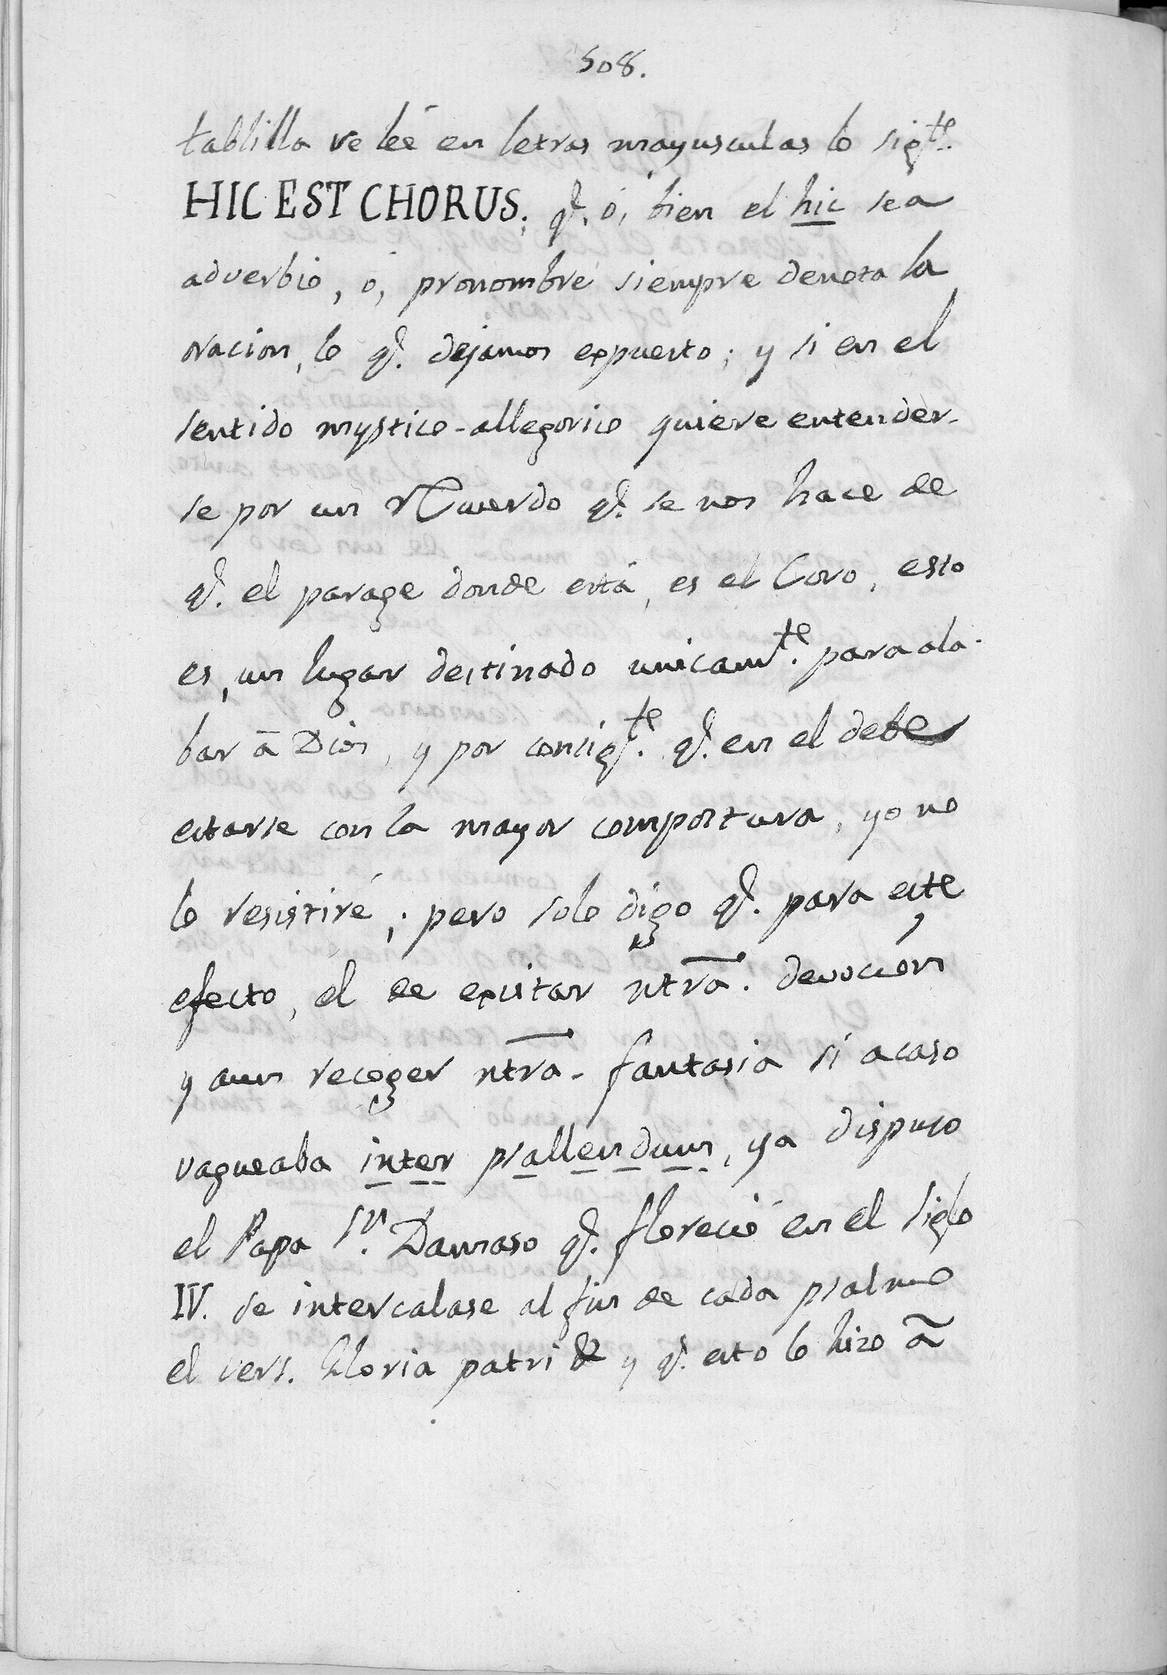 508.
tablilla se leé en letras mayusculas lo sigte.
HIC EST CHORUS; q.e ó, bien el hic sea
adverbio, ó, pronombre siempre denota la
oracion, lo q.e dejamos expuesto; y si en el
sentido mystico-allegorico quiere entender-
se por un recuerdo q.e se nos hace de
q.e el parage donde está, es el Coro, esto
es, un lugar destinado unicamte. para ala-
bar â Dios, y por consigte. q.e en el debe
estarse con la mayor compostura, yo no
lo resistiré; pero solo digo q.e para este
efecto, el de excitar ntra. devoción
y aun recoger ntra. fantasia si acaso
vagueaba inter psallendum, ya dispuso
el Papa Sn. Damaso q.e floreció en el siglo
IV. se intercalase al fin de cada psalmo
el vers. Gloria patri & y q.e esto lo hizo â